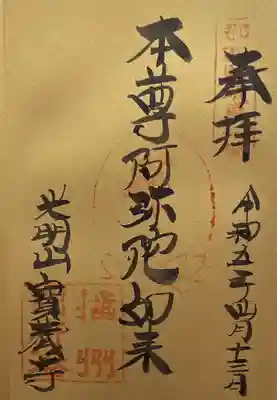 奉拝
令和五年四月十三日
本尊阿弥陀如来
光明山